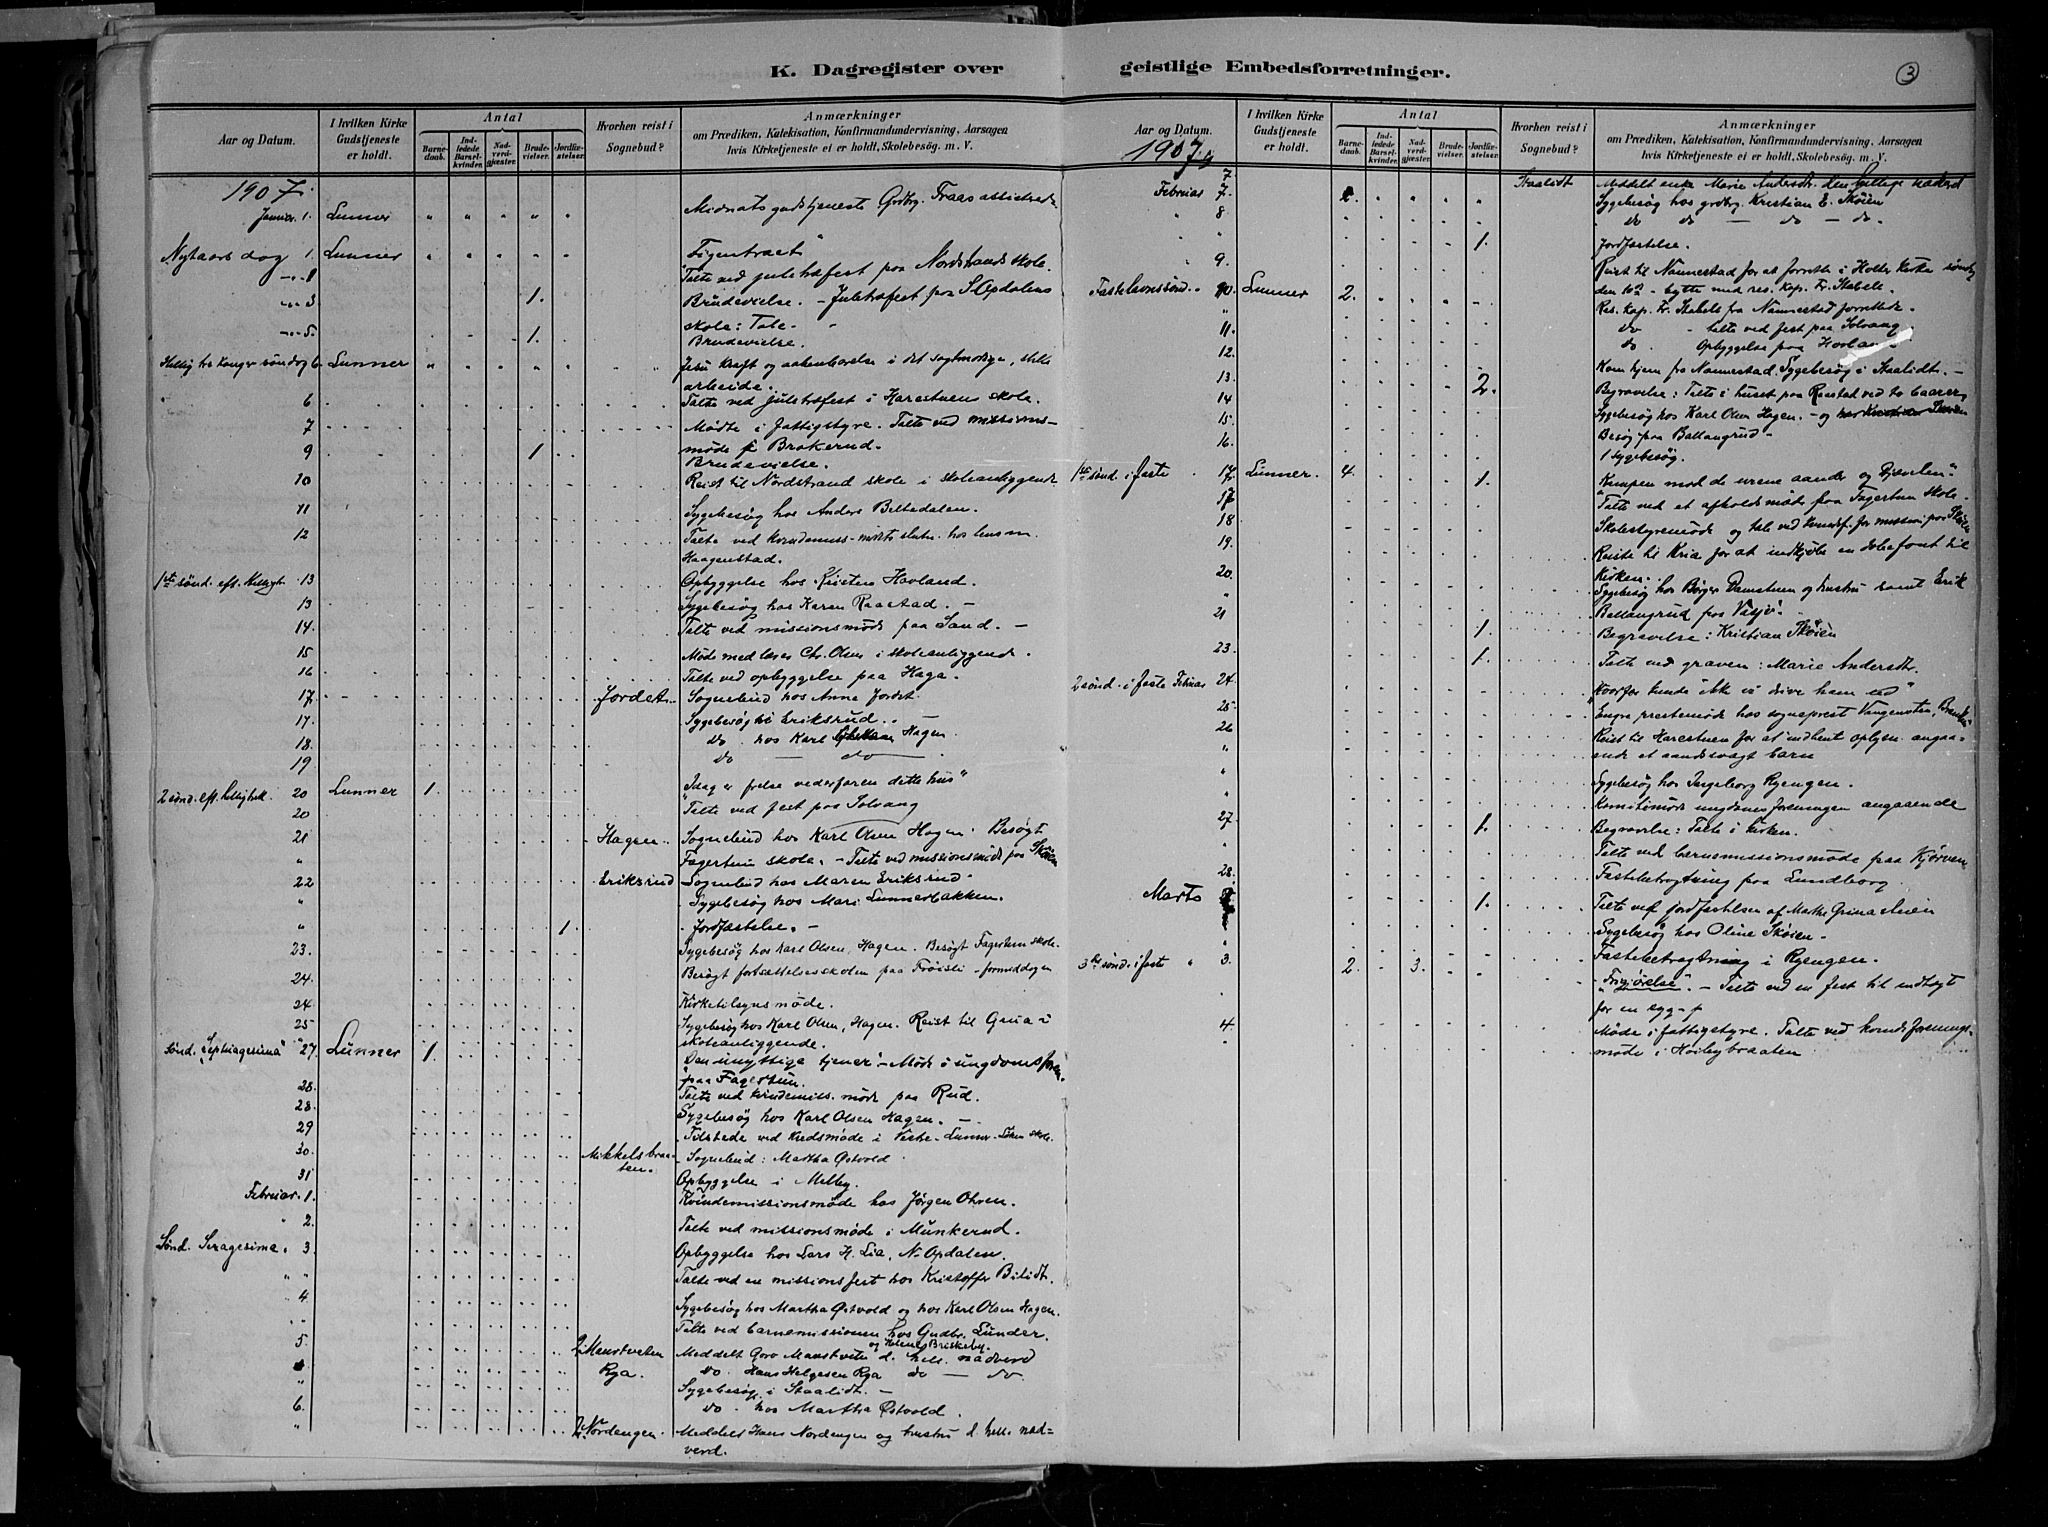 K. Dagregister over
Aar og Datum.
I hvilken Kirke Gudstjeneste er holdt.
Antal
Barnedaab.
Indledede Barselkvinder.
Nadverdgjæster.
Brudevielser.
Jordfæstelser.
Hvorhen reist i Sognebud?
Anmærkninger
om Prædiken, Katekisation, Konfirmandundervisning, Aarsagen
hvis Kirketjeneste ei er holdt, Skolebesøg. m. V.
1907.
Januar 1. Lunner " " " " " Midnatsgudstjeneste
Nytaars dag 1. Lunner " " " " "
-"- 1 Talte ved juletræfest paa Nordstrand skole.
-"- 3 1. Brudevielse. - Juletræfest paa S. Opdalens
skole: Tale.
-"- 5. 1. Brudevielse.
Hellig tre konger søndag 6 Lunner " " " " " Jesu Kraft og aabenbarelse i det sagtmodige, stille
arbeide.
6 Talte ved juletræfest i Harestuen skole.
7 Møde i fattigstyre. Talte ved missions-
møde p Brakerud.
9 1 Brudevielse.
10 Reist til Nordstrand skole i skoleanliggende.
11 Sygebesøg hos Anders Beltedalen.
12 Talte ved
Haagenstad.
1ste sønd. eft. Helligt. 13 Opbyggelse hos Kristen Hovland.
13 Sygebesøg hos Karen Raastad. -
14. Talte ved missionsmøde paa Sand. -
15 Møde med lærer Chr. Olsen i skoleanliggende.
16 Talte ved opbyggelse paa Haga.
17. Jordet. Sognebud hos Anne Jordet.
17. Sygebesøg hs Eriksrud. -
18. do. hos Karl Hagen
19 do — do
2 sønd. eft. helligtrek. 20 Lunner 1. "Idag er frelse vederfaren dette hus"
20 Talte ved fest paa Solvang
21 Hagen. Sognebud hos Karl Olsen Hagen. Besøgt
" Fagertun skole. - Talte ved missionsmøde paa Skøien
22 Eriksrud Sognebud hos Maren Eriksrud.
" Sygebesøg hos Mari Lunnerbakken.
" 1. Jordfæstelse. -
23. Sygebesøg hos Karl Olsen, Hagen. Besøgt Fagertun skole.
24. Besøgt fortsættelsesskolen paa Frøisli - formiddagen
24. Kirketilsynsmøde.
25 Sygebesøg hos Karl Olsen, Hagen. Reist til Grua i
skoleanliggende.
Sønd. Septuagesima " 27. Lunner 1. "Den unyttige tjener". Møde i ungdomsforen.
paa Fagertun.
28. Talte ved kvindemiss. møde paa Rud.
28. Sygebesøg hos Karl Olsen Hagen. -
29 Tilstede ved kredsmøde i Vestre Lunner skole.
30. Mikkelsbraa-
ten. Sognebud: Martha Østvold.
31 Opbyggelse i Melby.
Februar. 1. Kvindemissionsmøde hos Jørgen Ohren.
" 2. Talte ved missionsmøde i Munkerud.
Sønd. Sexagesima. 3. Opbyggelse hos Lars H. Lia, N. Opdalen.
" " Talte ved en missionsfest hos Kristoffer Bilidt.
" 4. Sygebesøg hos Martha Østvold og hos Karl Olsen Hagen.
" " Talte ved barnemissionen hos Gudbr. Lunder.
5. 2 Monstveten og Helene Briskeby.
Meddelt Goro Monstveten d. hell. nadverd
" Rya. do. Hans Helgesen Rya do — do.
" Sygebesøg i Staalidt. -
6. do. hos Martha Østvold.
" 2. Nordengen. Meddelt Hans Nordengen og hustru d. hell. nad-
verd.
geistlige Embedsforretninger.
3
Aar og Datum.
I hvilken Kirke Gudstjeneste er holdt.
Antal
Barnedaab.
Indledede Barselkvinder.
Nadverdgjæster.
Brudevielser.
Jordfæstelser.
Hvorhen reist i Sognebud?
Anmærkninger
om Prædiken, Katekisation, Konfirmandundervisning, Aarsagen
hvis Kirketjeneste ei er holdt, Skolebesøg. m. V.
1907.
7. Staalidt Meddelt enke Marie Andersdtr. den hellige nadverd
Februar 7. Sygebesøg hos grdbrg. Kristian E. Skøien
" 8. do do — do — do.
" " 1. Jordfæstelse.
" 9. Reist til Nannestad for at forrette i Holter kirke søndag
den 10de - bytte med res. kap. Fr. Stabell.
Fastelavnssønd. 10. Lunner 2. Res. kap. Fr. Stabell fra Nannestad forrettede.
" do - talte ved fest paa Solvang
11. do. Opbyggelse paa Hovland
12. Kom hjem fra Nannestad. Sygebesøg i Staalidt. -
13. 2. Begravelse: Talte i huset paa Raastad ved to baarer.
14 Sygebesøg hos Karl Olsen Hagen. - og hos Kristian Skøien
15. Besøg paa Ballangrud -
16. 1 sygebesøg.
1ste sønd. i faste 17. Lunner. 4. 1. "Kampen mod de urene aander og Djævelen."
17 Talte ved et afholdsmøde paa Fagertun skole.
18 Skolestyremøde og tale ved kvindef. for mission paa Skøien
19. Reiste til Kria for at indkjøbe en døbefont til
Kirken.
20. Sygebesøg hos Børger Damstuen og hustru samt Erik
" Ballangrud paa
21 1. Begravelse: Kristian Skøien
23. 1. Talte ved graven: Marie Andersdtr.
2 sønd. i faste Februar 24. "Hvorfor kunde ikke vi drive ham ud"
25. Engre prestemøde hos sogneprest Vangensten, Brandbu
26 Reist til Harestuen for at indhente oplysn. angaa-
" ende et aandssvagt barn
" Sygebesøg hos Ingeborg Ryengen.
" Komitémøde ungdomsforeningen angaaende
27. 1. Begravelse: Talte i kirken.
" Talte ved barnemissionsmøde paa Kjørven
28. Fastebetragtning paa Lundborg.
Marts 1. Talte ved jordfæstelsen af Marthe Grinastuen
" Sygebesøg hos Oline Skøien -
3die sønd. i faste " 3. 2. 3. Fastebetragtning i Ryengen.
"Frigjørelse". - Talte ved en fest til indtægt
for en syg p
4. Møde i fattigstyre. Talte ved kvindeforenings-
møde i Høibybraaten